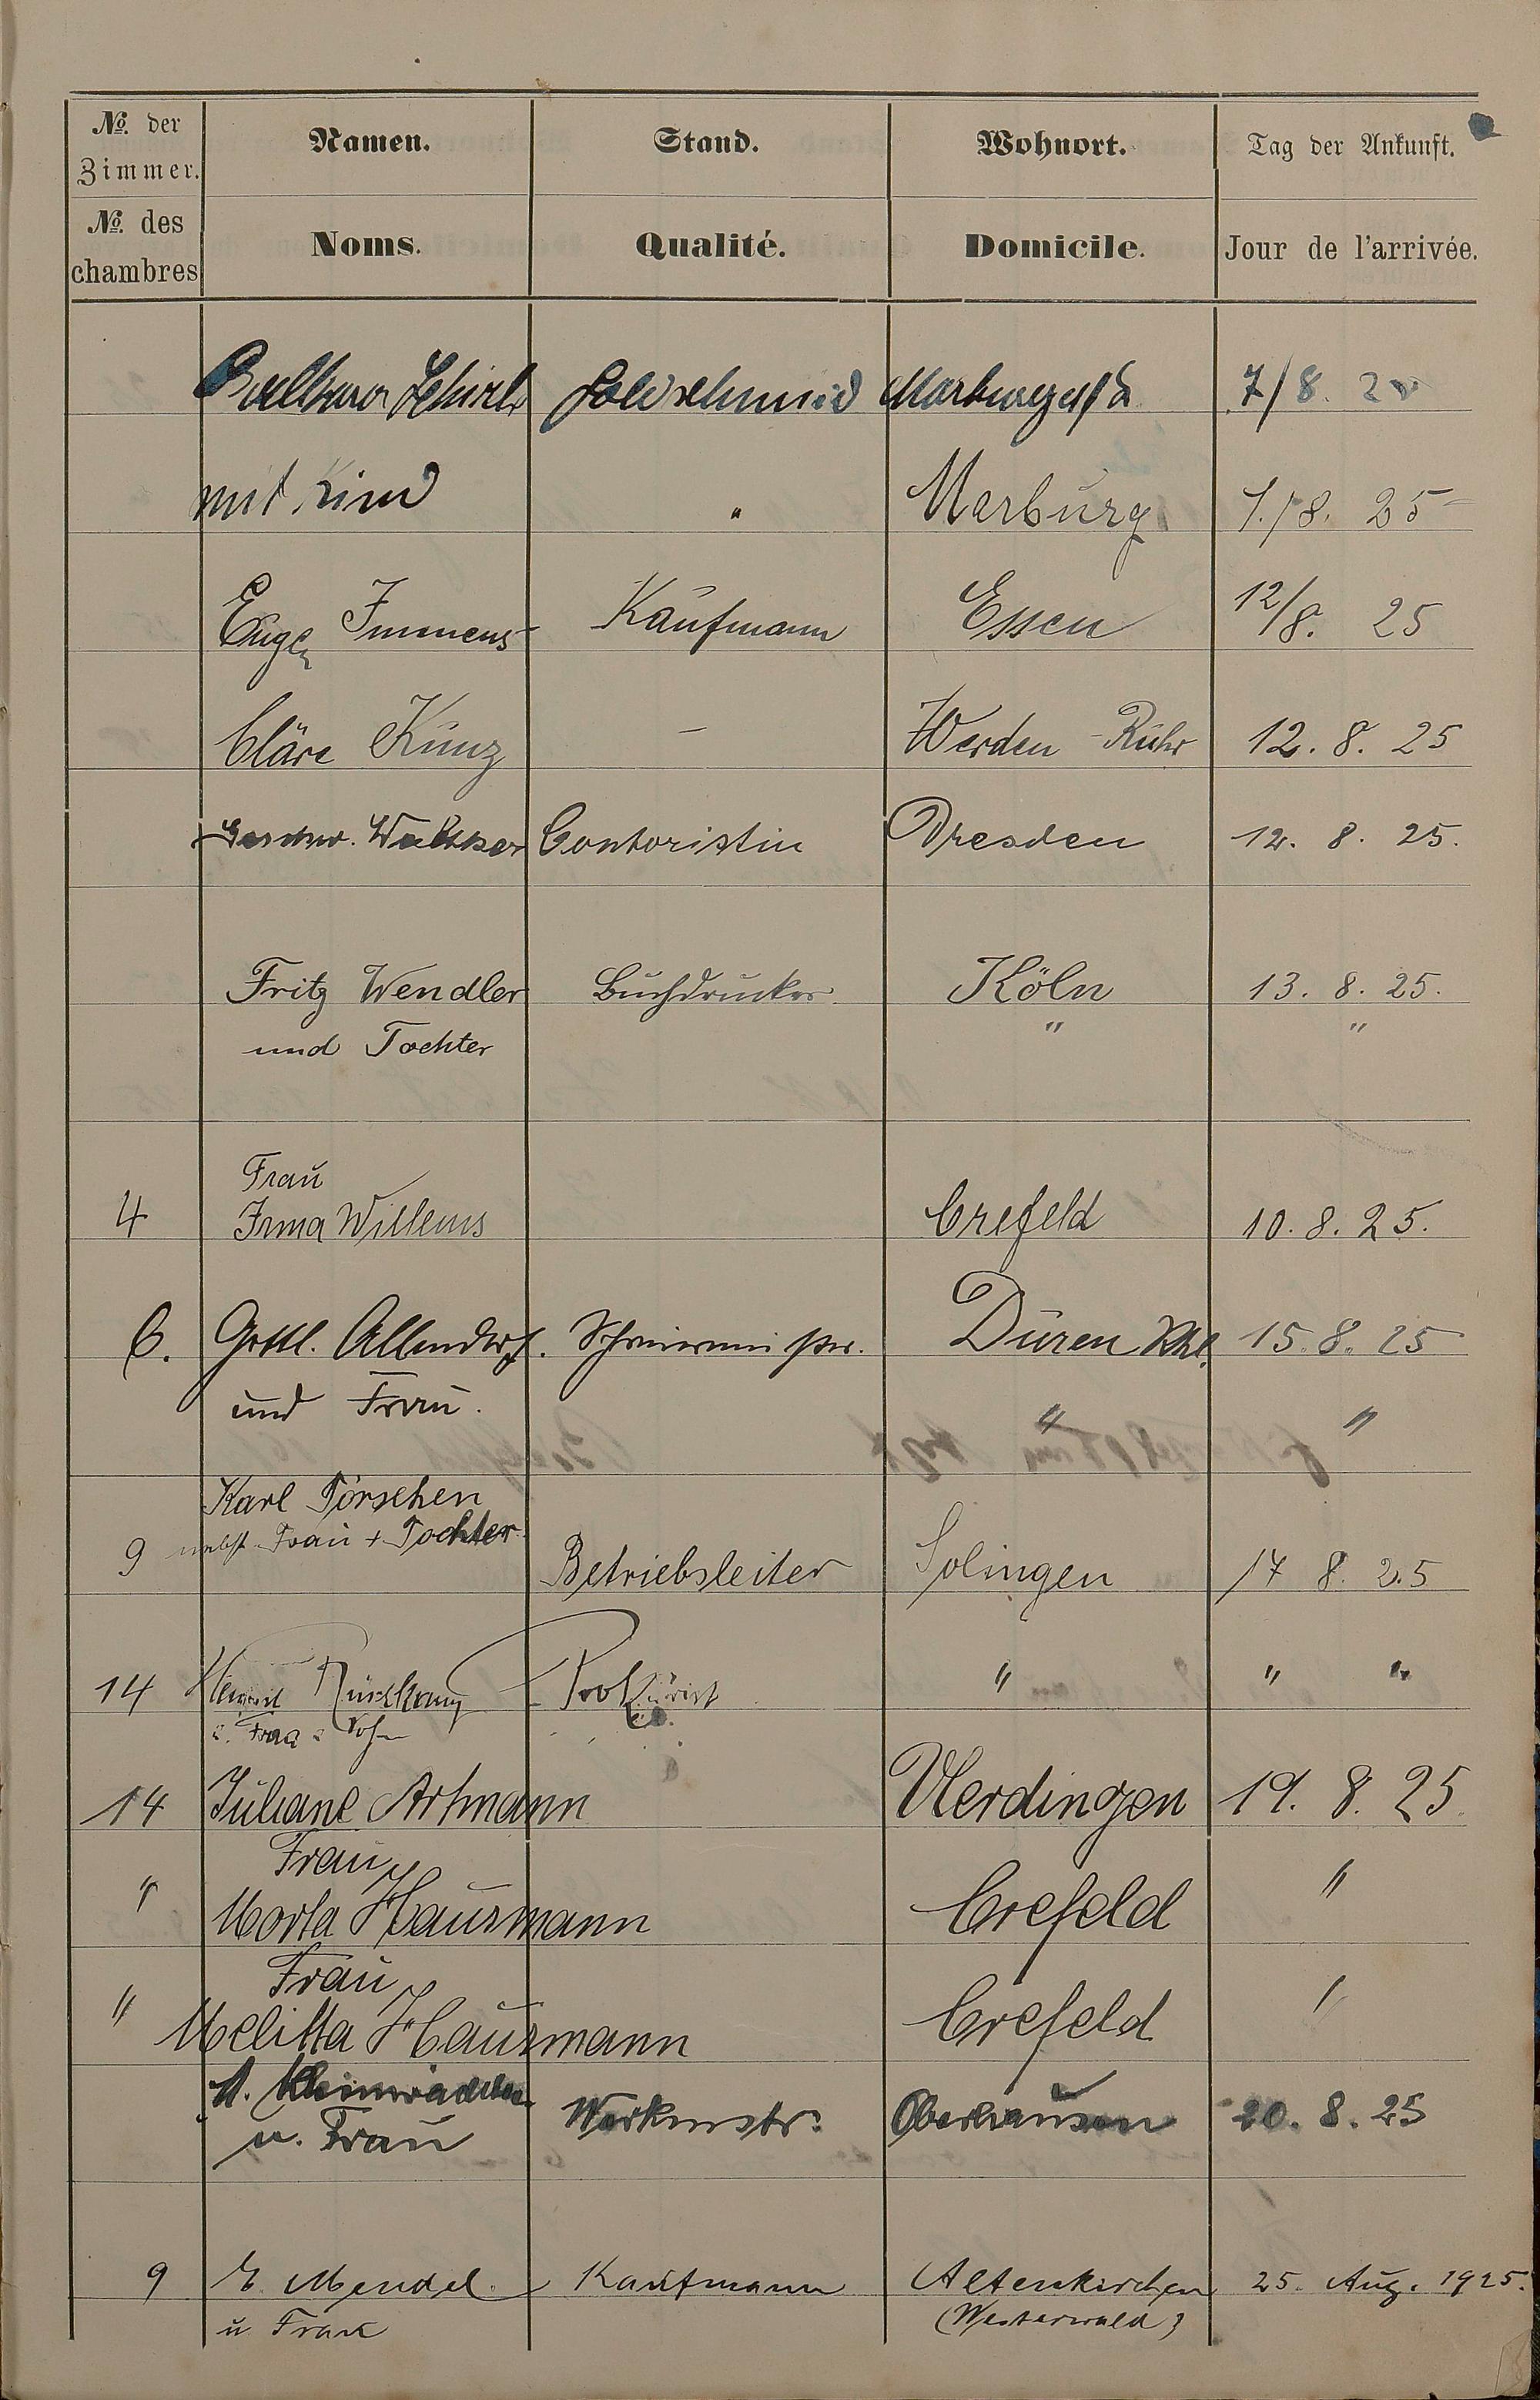 No. der Zimmer. Namen. Stand. Wohnort. Tag der Ankunft.
No. des chambres Noms. Qualité. Domicile. Jour de l'arrivée.
Goldschmid Marburg 7/8.
mit Kind " Marburg 7./8. 25
Eugen Immens Kaufmann Essen 12/8. 25
Cläre Kunz — Werden - Ruhr 12. 8. 25
Contoristin Dresden 12. 8. 25.
Fritz Wendler Buchdrucker Köln 13. 8. 25.
und Tochter " "
Frau
4 Irma Willems Crefeld 10. 8. 25.
6. Gottl. Allendorf. Düren Rhl. 15. 8. 25
und Frau. " "
Karl Pörschen
9 nebst Frau + Tochter
Betriebsleiter Solingen 17 8. 25
14 Prokurist " " "
u. Frau u Sohn
14 Juliane Artmann Uerdingen 19. 8. 25
Frau
" Marta Hausmann Crefeld "
Frau
" Melitta Hausmann Crefeld "
Werkmstr. Oberhausen 20. 8. 25
u. Frau
9 E. Mendel Kaufmann Altenkirchen 25. Aug. 1925.
u Frau (Westerwald)